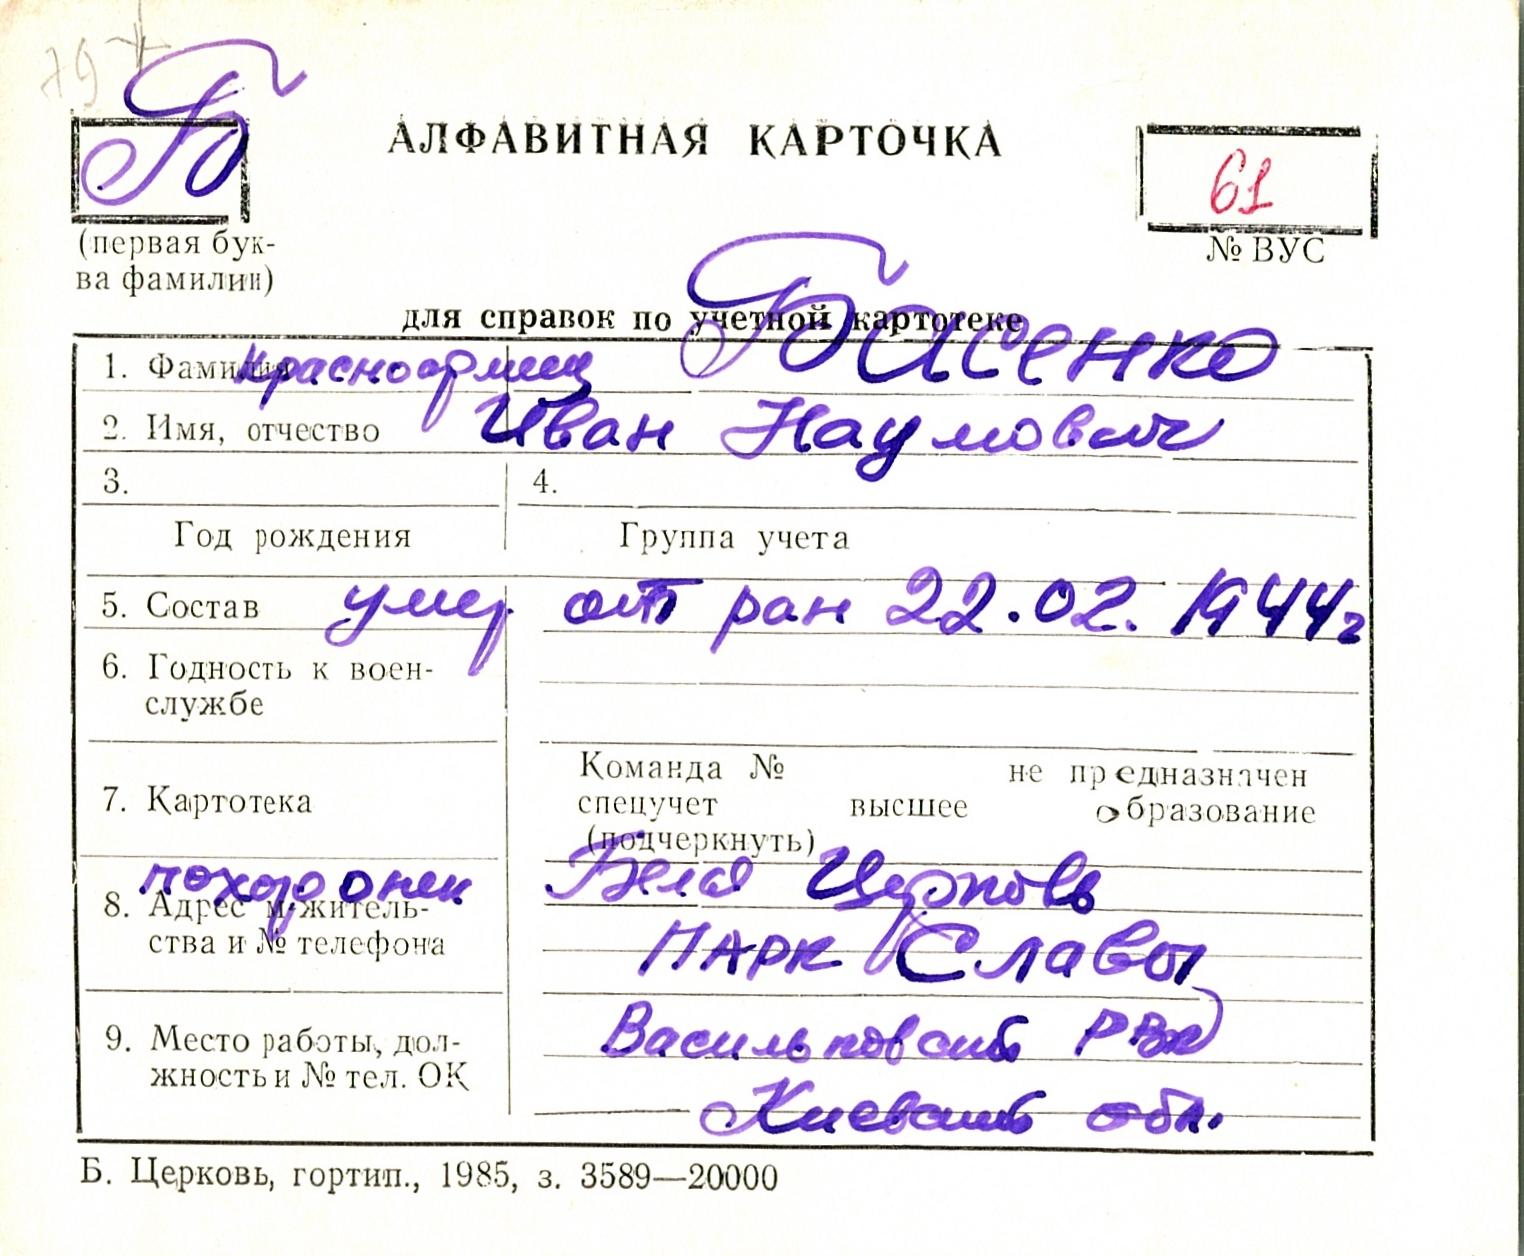 Б
АЛФАВИТНАЯ КАРТОЧКА
61
(первая бук-
ва фамилии)
№ ВУС
для справок по учетной картотеке
1. Фамилия красноармеец Басенко
2. Имя, отчество Иван Наумович
3. 4.
Год рождения Группа учета
5. Состав умер от ран 22.02.1944г
6. Годность к воен-
службе
Команда № не предназначен
7. Картотека спецучет высшее образование
(подчеркнуть)
похоронен Белая Церковь
8. Адрес м/житель-
ства и № телефона Парк Славы
9. Место работы, дол-
жность и № тел. ОК Васильковский РВК
Киевский обл.
Б. Церковь, гортип., 1985, з. 3589—20000